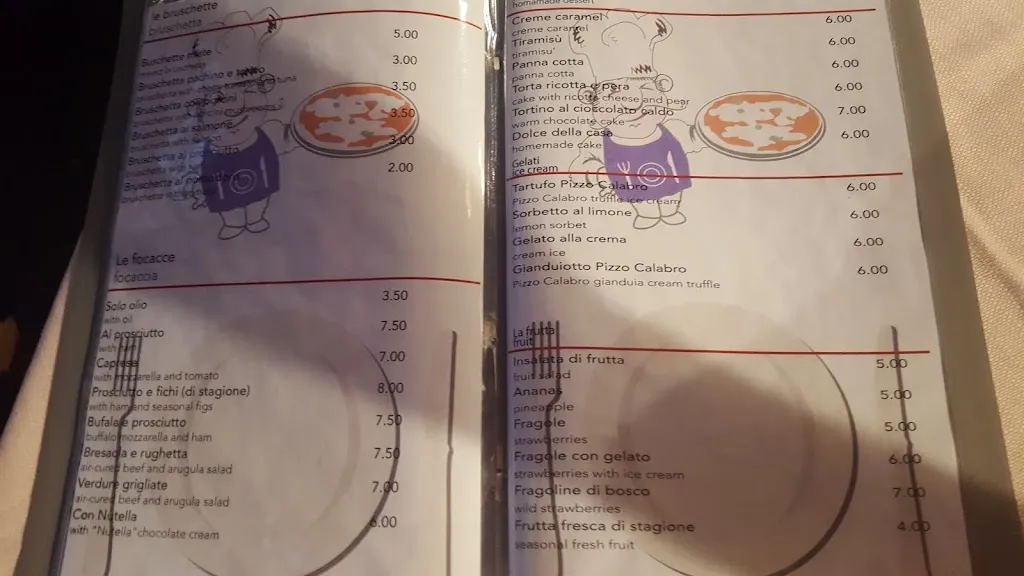 le bruschette
bruschetta
5.00
Buschette miste
3.00
Bruschetta pachino e
3.50
Bruschetta
3.50
Bruschetta al salmone
3.00
Bruschetta al
2.00
Bruschetta al
Le focacce
focaccia
Solo olio 3.50
with oil
Al prosciutto 7.50
with
Caprese 7.00
with mozzarella and tomato
Prosciutto e fichi (di stagione) 8.00
with ham and seasonal figs
Bufala e prosciutto 7.50
buffalo mozzarella and ham
Bresaola e rughetta 7.50
air-cured beef and arugula salad
Verdure grigliate 7.00
air-cured beef and arugula salad
Con Nutella 6.00
with "Nutella" chocolate cream
homamade dessert
Creme caramel 6.00
creme caramel
Tiramisù 6.00
tiramisu'
Panna cotta 6.00
panna cotta
Torta ricotta e pera 6.00
cake with ricotta cheese and pear
Tortino al cioccolato caldo 7.00
warm chocolate cake
Dolce della casa 6.00
homemade cake
Gelati
ice cream
Tartufo Pizzo Calabro 6.00
Pizzo Calabro truffle ice cream
Sorbetto al limone 6.00
lemon sorbet
Gelato alla crema 6.00
cream ice
Gianduiotto Pizzo Calabro 6.00
Pizzo Calabro gianduia cream truffle
La frutta
fruit
Insalata di frutta 5.00
fruit salad
Ananas 5.00
pineapple
Fragole 5.00
strawberries
Fragole con gelato 6.00
strawberries with ice cream
Fragoline di bosco 7.00
wild strawberries
Frutta fresca di stagione 4.00
seasonal fresh fruit